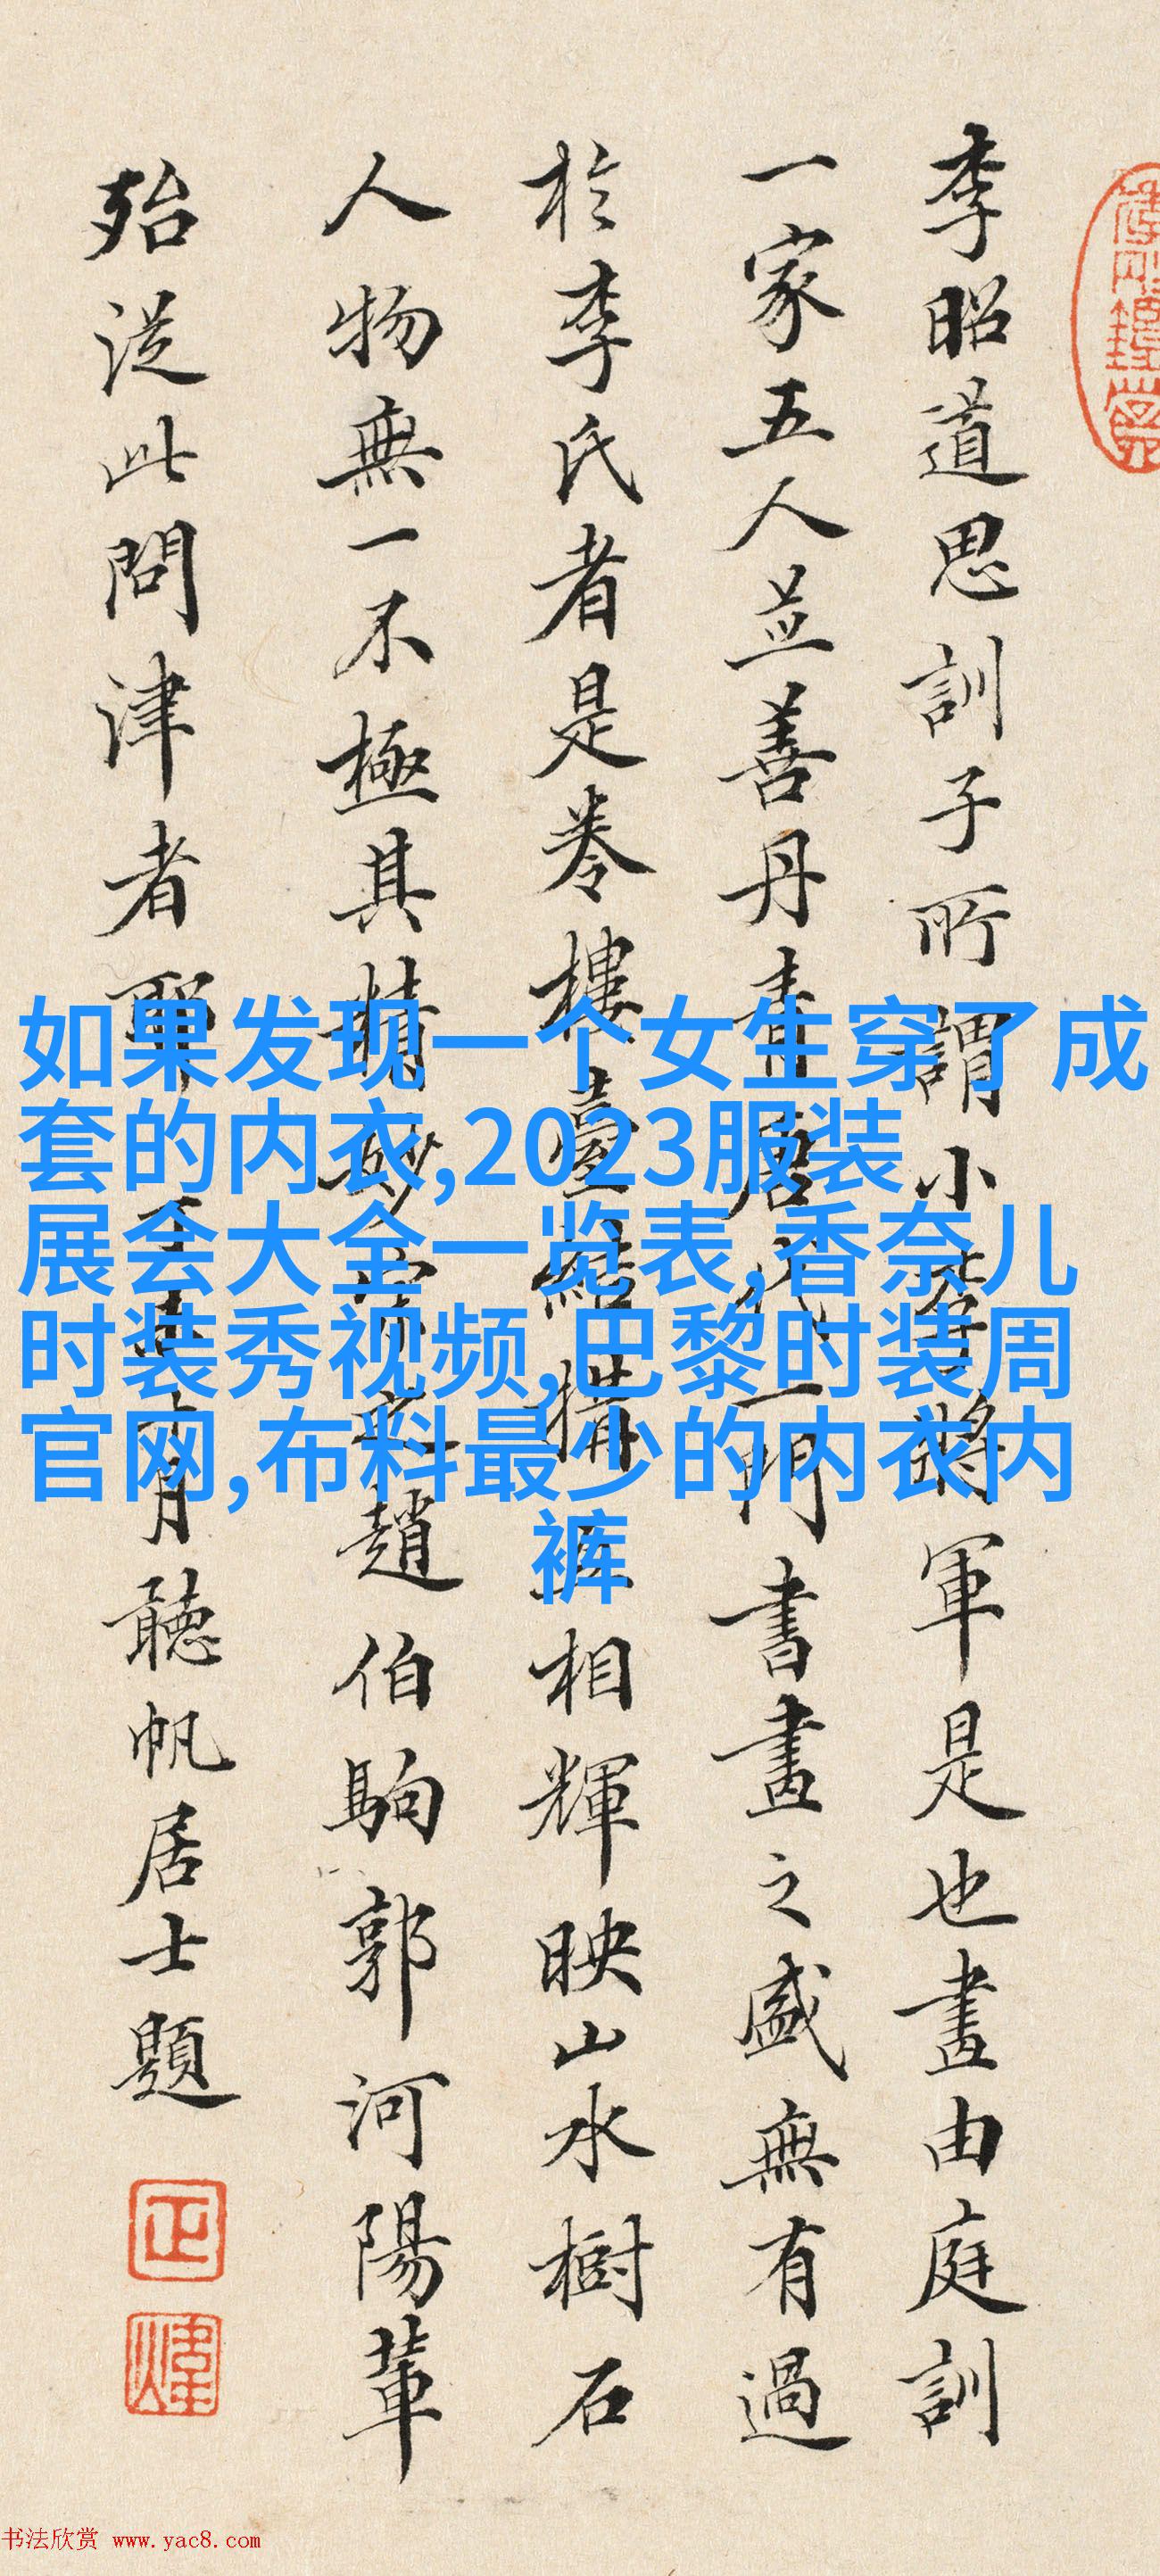 李昭道思訓子所謂小李將軍是也畫由庭訓
一家五人並善丹青唐代一門書畫之盛無有過
於李氏者是卷樓臺結構互相輝映山水樹石
人物無一不極其精妙宋之趙伯駒郭河陽輩
殆從此問津者耶月聽帆居士題
正
煒
如果发现一个女生穿了成
套的内衣,2023服装
展会大全一览表,香奈儿
时装秀视频,巴黎时装周
官网,布料最少的内衣内
裤
书法欣赏 www.yac8.com